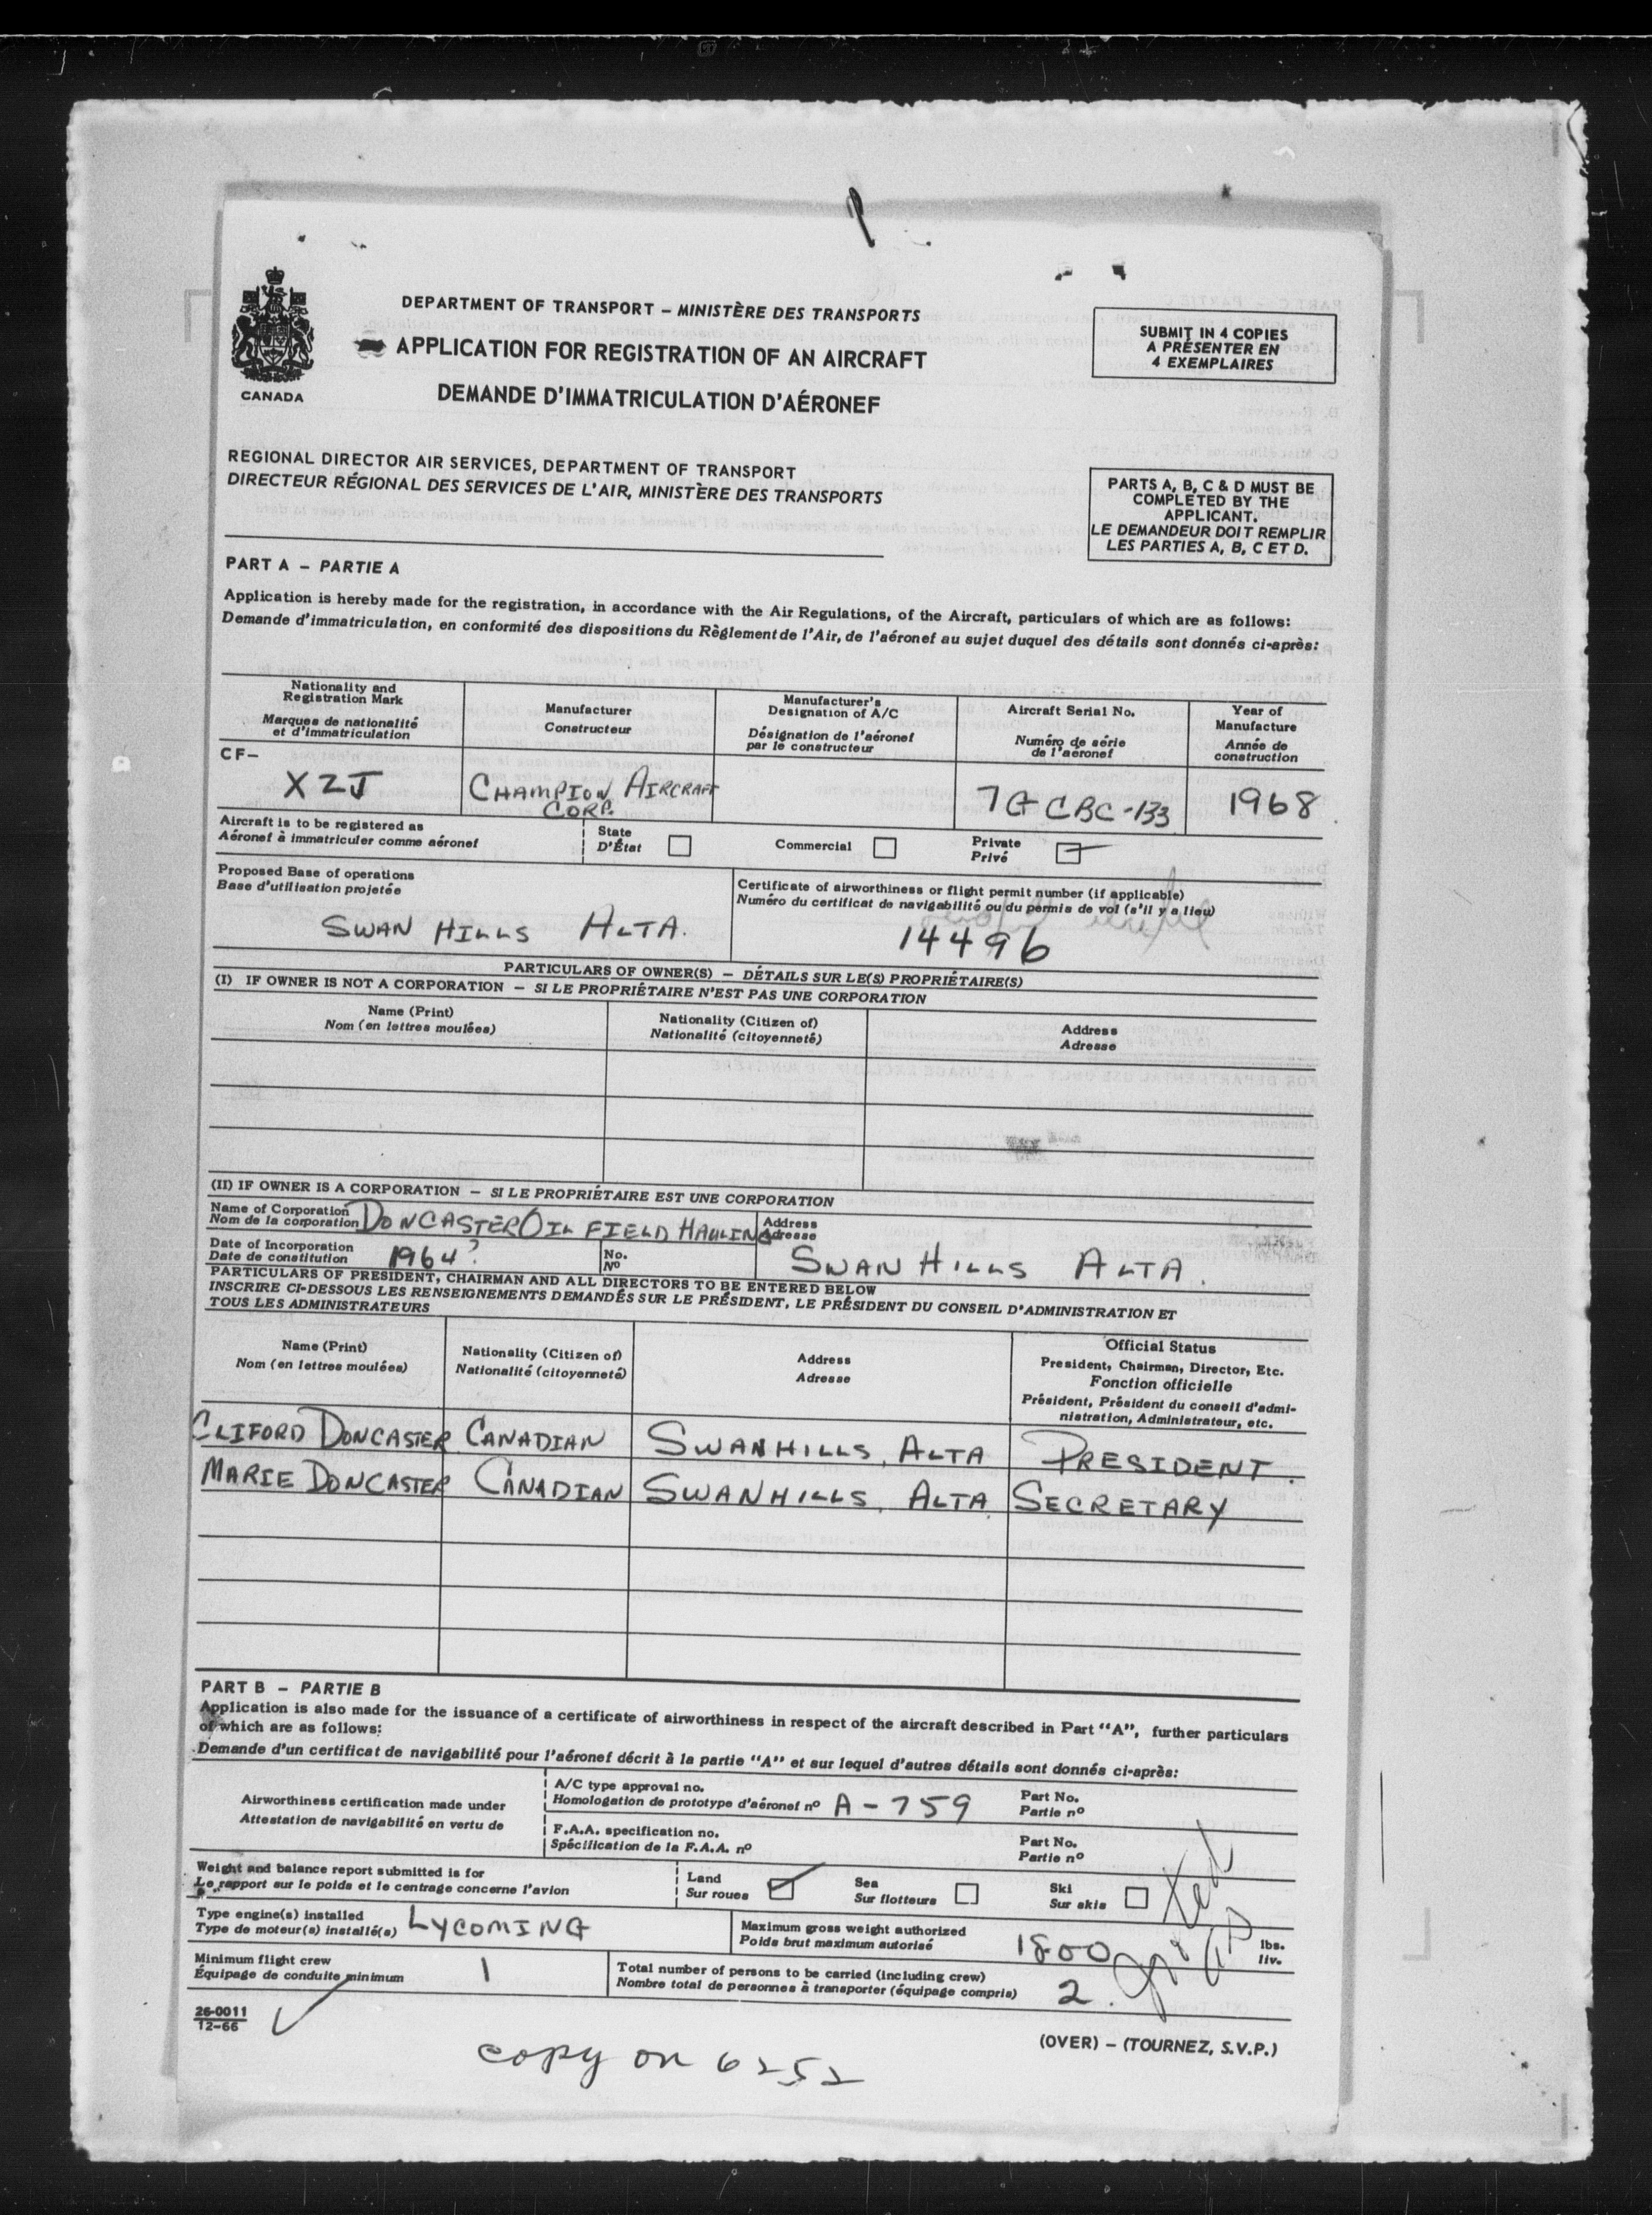 CANADA
DEPARTMENT OF TRANSPORT – MINISTÈRE DES TRANSPORTS
APPLICATION FOR REGISTRATION OF AN AIRCRAFT
DEMANDE D'IMMATRICULATION D'AÉRONEF
SUBMIT IN 4 COPIES
A PRÉSENTER EN
4 EXEMPLAIRES
REGIONAL DIRECTOR AIR SERVICES, DEPARTMENT OF TRANSPORT
DIRECTEUR RÉGIONAL DES SERVICES DE L'AIR, MINISTÈRE DES TRANSPORTS
PARTS A, B, C & D MUST BE
COMPLETED BY THE
APPLICANT.
LE DEMANDEUR DOIT REMPLIR
LES PARTIES A, B, C ET D.
PART A – PARTIE A
Application is hereby made for the registration, in accordance with the Air Regulations, of the Aircraft, particulars of which are as follows:
Demande d'immatriculation, en conformité des dispositions du Règlement de l'Air, de l'aéronef au sujet duquel des détails sont donnés ci-après:
Nationality and
Registration Mark
Marques de nationalité
et d'immatriculation
Manufacturer
Constructeur
Manufacturer's
Designation of A/C
Désignation de l'aéronef
par le constructeur
Aircraft Serial No.
Numéro de série
de l'aéronef
Year of
Manufacture
Année de
construction
CF-
XZJ
CHAMPION AIRCRAFT
CORP.
7GCBC-133
1968
Aircraft is to be registered as
Aéronef à immatriculer comme aéronef
State
D'État
Commercial
Private
Privé
Proposed Base of operations
Base d'utilisation projetée
SWAN HILLS ALTA.
Certificate of airworthiness or flight permit number (if applicable)
Numéro du certificat de navigabilité ou du permis de vol (s'il y a lieu)
14496
PARTICULARS OF OWNER(S) – DÉTAILS SUR LE(S) PROPRIÉTAIRE(S)
(I) IF OWNER IS NOT A CORPORATION – SI LE PROPRIÉTAIRE N'EST PAS UNE CORPORATION
Name (Print)
Nom (en lettres moulées)
Nationality (Citizen of)
Nationalité (citoyenneté)
Address
Adresse
(II) IF OWNER IS A CORPORATION – SI LE PROPRIÉTAIRE EST UNE CORPORATION
Name of Corporation
Nom de la corporation
DONCASTER OIL FIELD HAULING
Address
Adresse
SWAN HILLS ALTA.
Date of Incorporation
Date de constitution
1964?
No.
Nº
PARTICULARS OF PRESIDENT, CHAIRMAN AND ALL DIRECTORS TO BE ENTERED BELOW
INSCRIRE CI-DESSOUS LES RENSEIGNEMENTS DEMANDÉS SUR LE PRÉSIDENT, LE PRÉSIDENT DU CONSEIL D'ADMINISTRATION ET
TOUS LES ADMINISTRATEURS
Name (Print)
Nom (en lettres moulées)
Nationality (Citizen of)
Nationalité (citoyenneté)
Address
Adresse
Official Status
President, Chairman, Director, Etc.
Fonction officielle
Président, Président du conseil d'admi-
nistration, Administrateur, etc.
CLIFORD DONCASTER CANADIAN SWANHILLS, ALTA PRESIDENT.
MARIE DONCASTER CANADIAN SWANHILLS, ALTA. SECRETARY
PART B – PARTIE B
Application is also made for the issuance of a certificate of airworthiness in respect of the aircraft described in Part "A", further particulars
of which are as follows:
Demande d'un certificat de navigabilité pour l'aéronef décrit à la partie "A" et sur lequel d'autres détails sont donnés ci-après:
Airworthiness certification made under
Attestation de navigabilité en vertu de
A/C type approval no.
Homologation de prototype d'aéronef nº A-759
Part No.
Partie nº
F.A.A. specification no.
Spécification de la F.A.A. nº
Part No.
Partie nº
Weight and balance report submitted is for
Le rapport sur le poids et le centrage concerne l'avion
Land
Sur roues
Sea
Sur flotteurs
Ski
Sur skis
Type engine(s) installed
Type de moteur(s) installé(s)
LYCOMING
Maximum gross weight authorized
Poids brut maximum autorisé
1800
lbs.
liv.
Minimum flight crew
Équipage de conduite minimum
1
Total number of persons to be carried (including crew)
Nombre total de personnes à transporter (équipage compris)
2.
26-0011
12-66
(OVER) – (TOURNEZ, S.V.P.)
copy on 6252